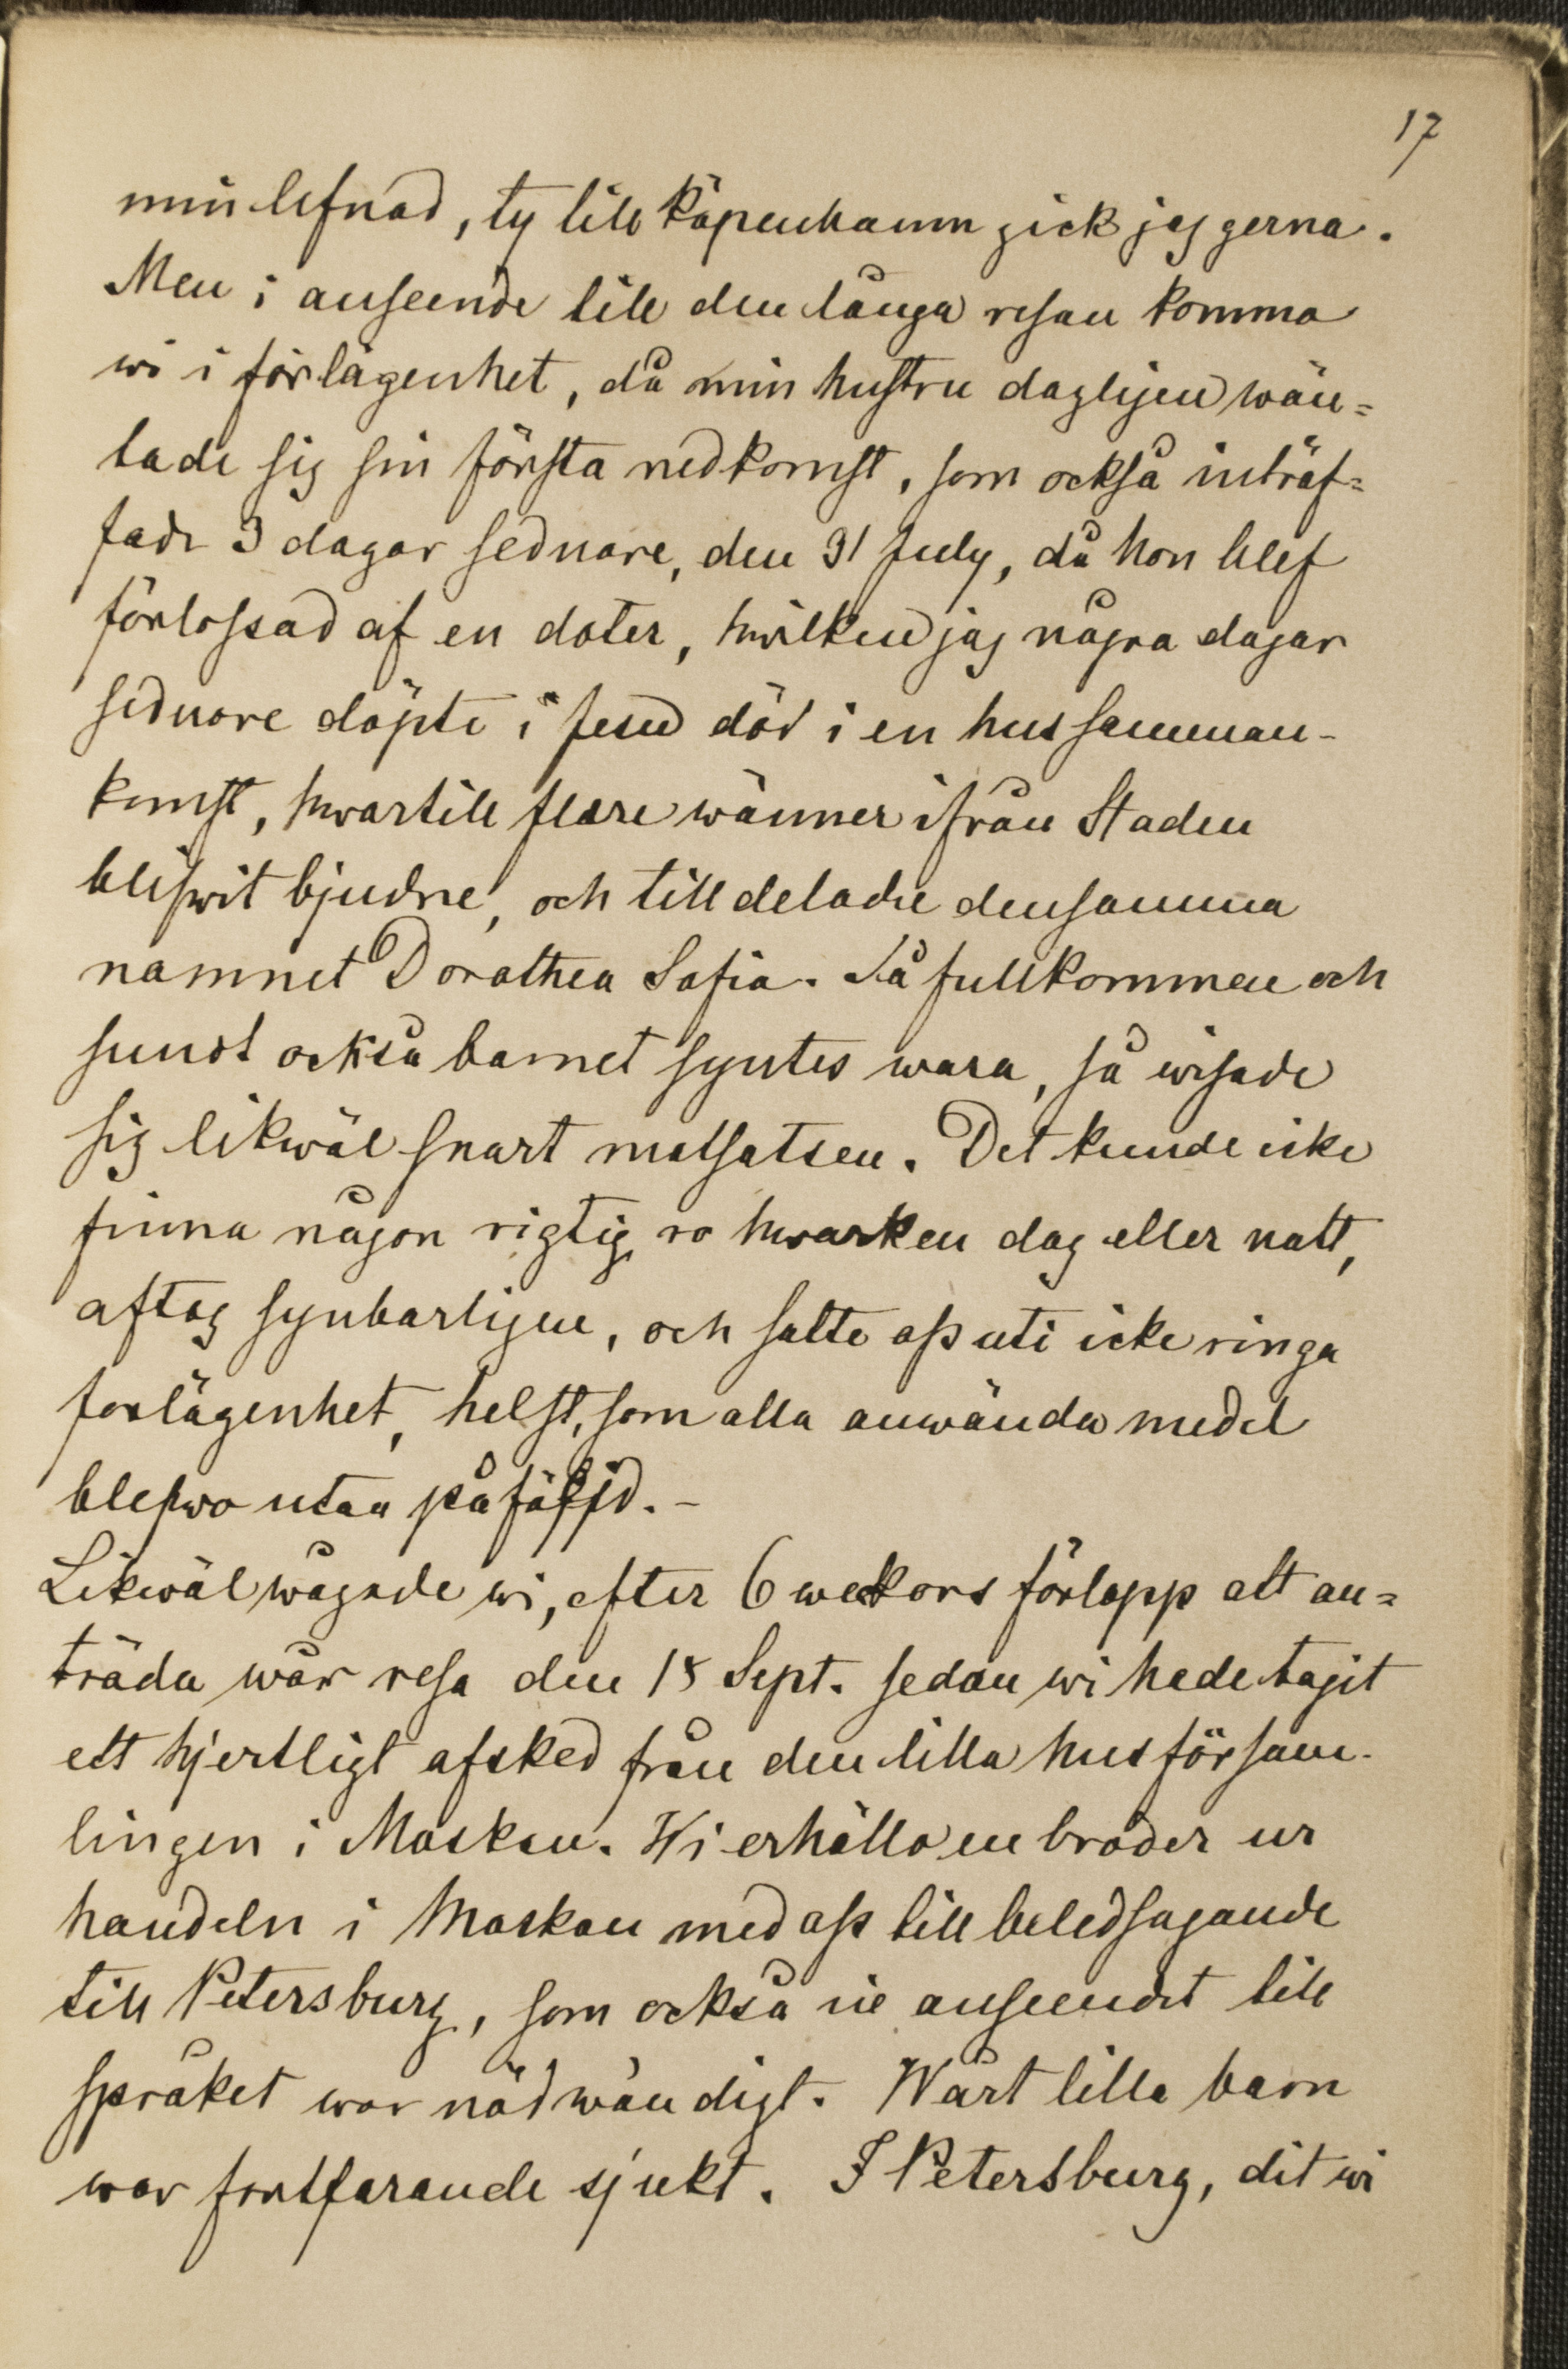 17
min lefnad, ty till Köpenhamn gick jag gerna.
Men i anseende till den långa resan komma
wi i förlägenhet, då min hustru dagligen wän=
tade sig sin första nedkomst, som också inträf=
fade 3 dagar sednare, den 31 July, då hon blef
förlossad af en doter, hwilken jag några dagar
sednare döpte i Jesu död i en hussamman-
komst, hwartill flere wänner ifrån Staden
blifwit bjudne, och tilldelade densamma
namnet Dorothea Sofia. Så fullkommen och
sundt också barnet syntes wara, så wisade
sig likwäl snart motsatsen. Det kunde icke
finna någon rigtig ro hwarken dag eller natt,
aftog synbarligen, och satte oss uti icke ringa
forlägenhet, helst, som alla anwända medel
blefwo utan påföljd. -
Likwäl wågade wi, efter 6 weckors förlopp att an=
träda wår resa den 18 Sept. sedan wi hade tagit
ett hjertligt afsked från den lilla husförsam-
lingen i Moskau. Wi erhöllo en broder ur
handeln i Moskau med oss till beledsagande
till Petersburg, som också i anseendet till
språket war nödwändigt. Wårt lilla barn
war fortfarande sjukt. I Petersburg, dit wi